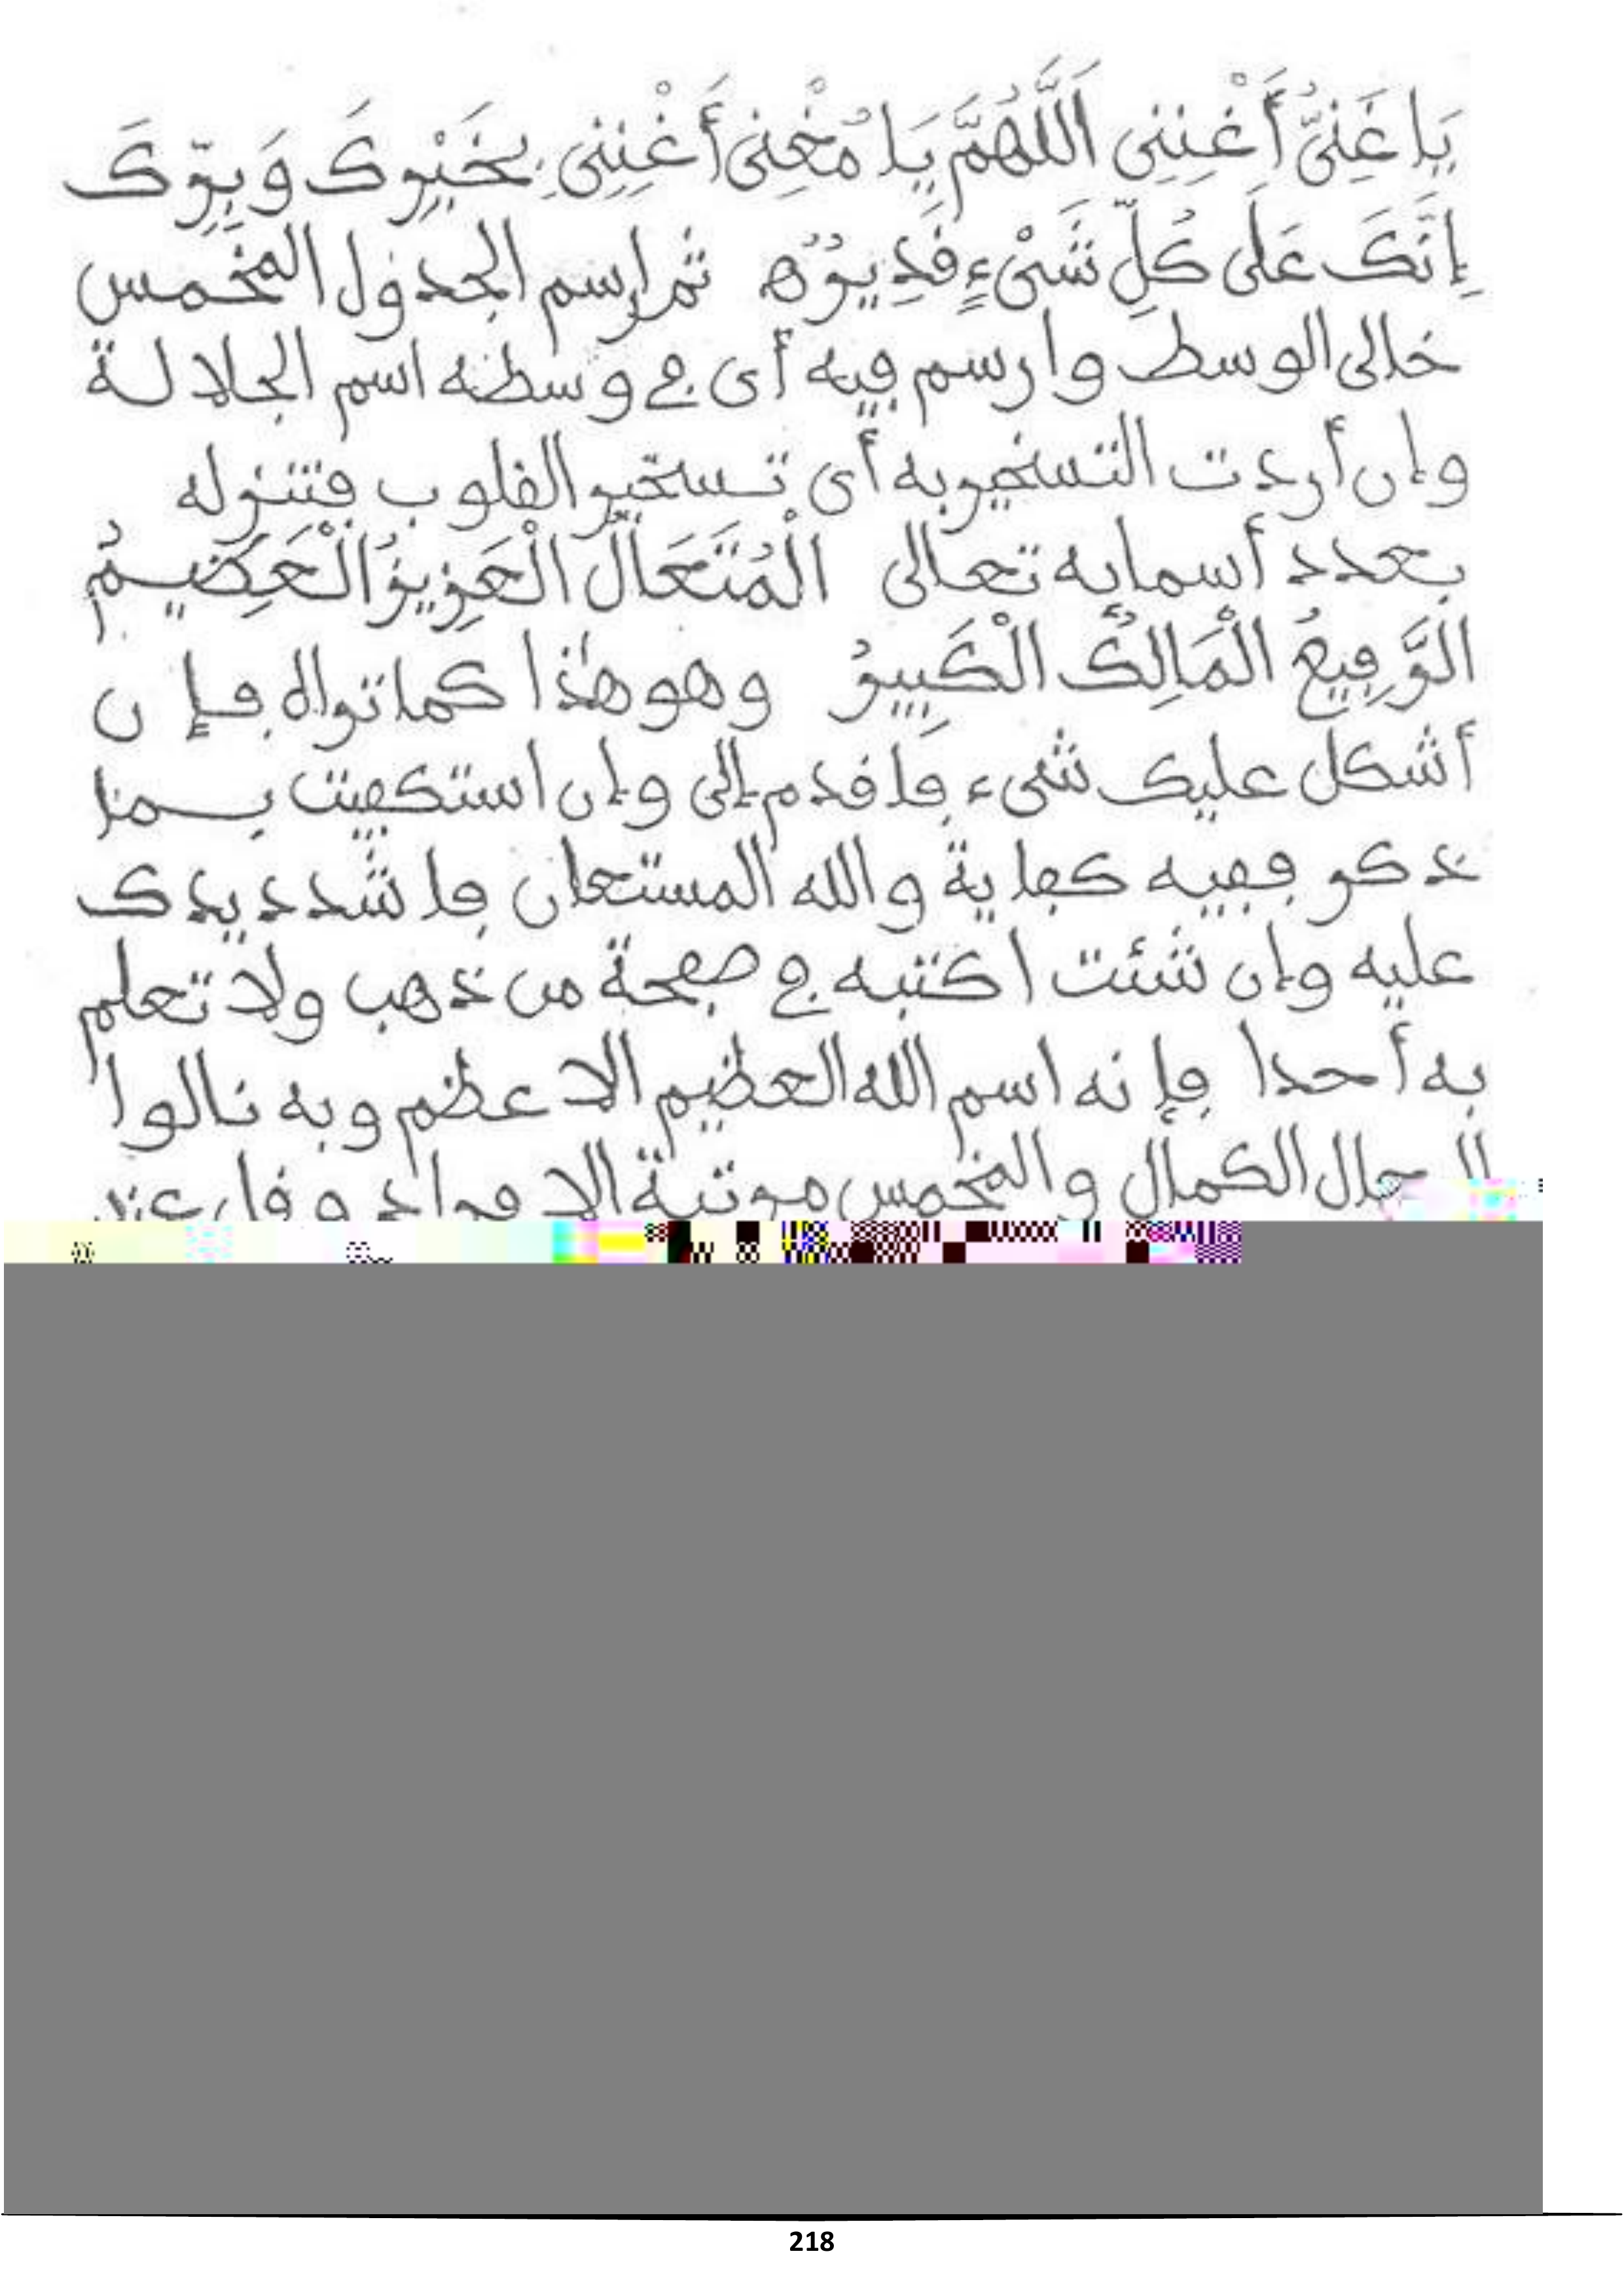 يَا غَنِيُّ أَغْنِنِي اَللَّهُمَّ يَا مُغْنِي أَغْنِنِي بِخَيْرِكَ وَبِرِّكَ
إِنَّكَ عَلَى كُلِّ شَيْءٍ قَدِيرٌ ه ثم ارسم الجدول المخمس
خالى الوسط وارسم فيه أى في وسطه اسم الجلالة
وإن أردت التسخير به أى تسخير القلوب فتنزله
بعدد أسمايه تعالى الْمُتَعَالُ الْعَزِيزُ الْعَظِيمُ
الرَّفِيعُ الْمَالِكُ الْكَبِيرُ وهو هذا كما تراه فإن
أشكل عليك شىء فاقدم إلى وإن استكفيت بما
ذكر ففيه كفاية والله المستعان فاشدد يدك
عليه وإن شئت اكتبه في صفحة من ذهب ولا تعلم
به أحدا فإنه اسم الله العظيم الاعظم وبه نالوا
الرجال الكمال والمخمس مرتبة الافراد
218